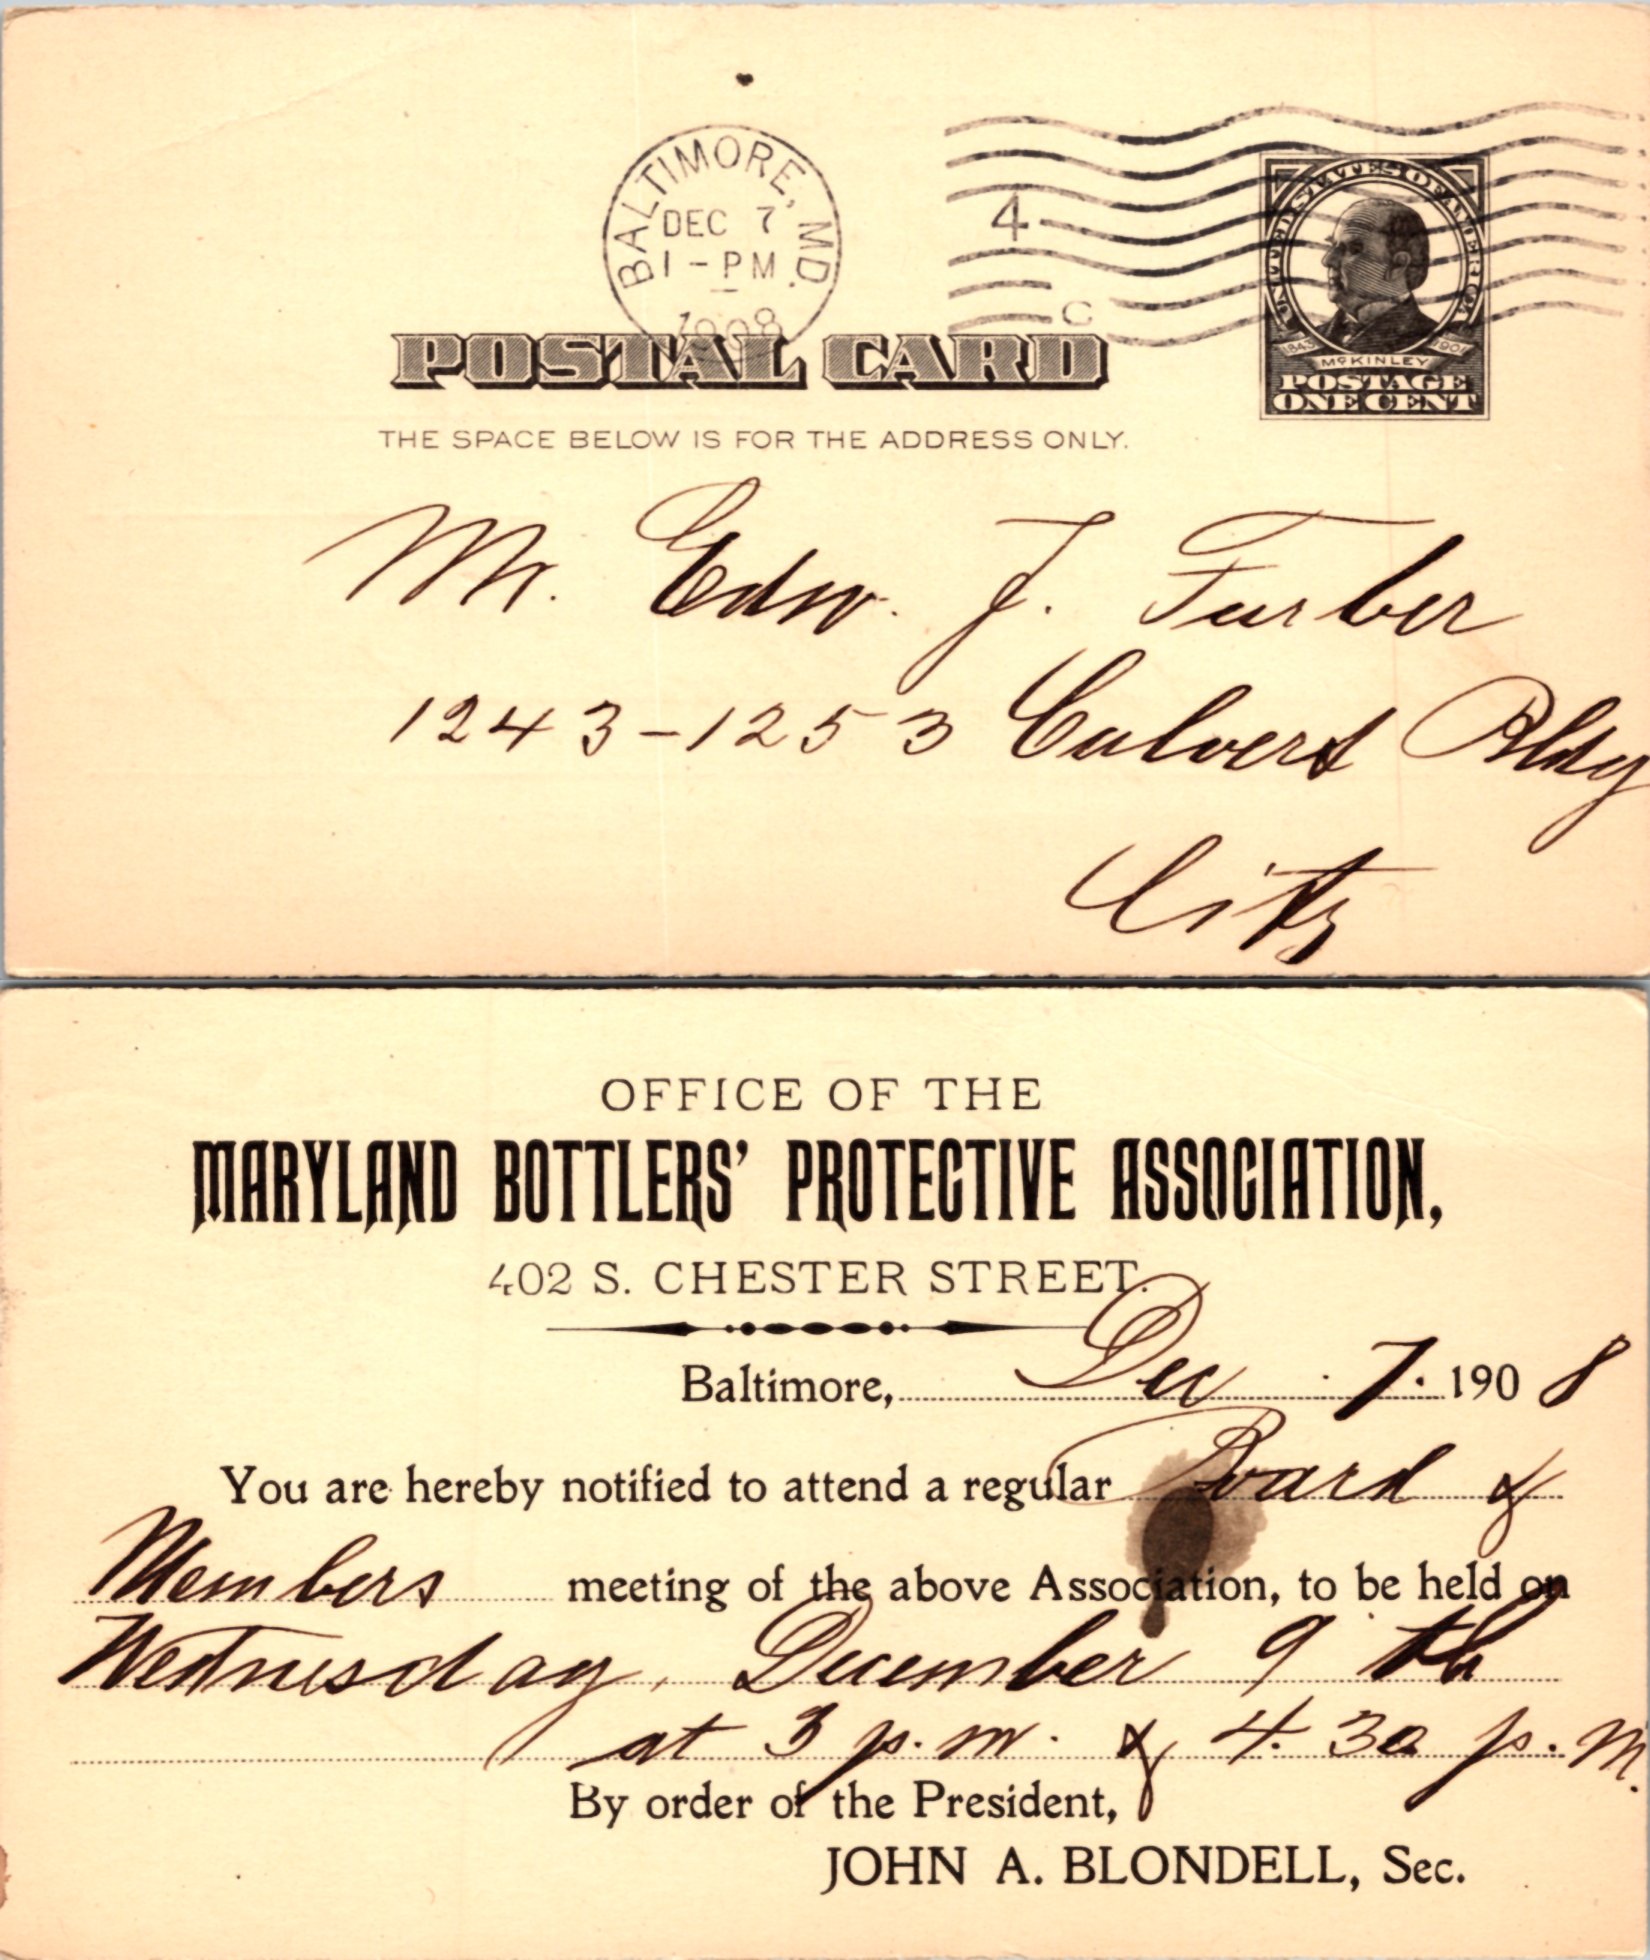 BALTIMORE, MD.
DEC 7
1-PM
1908
4
C
UNITED STATES OF AMERICA
1843 McKINLEY 1901
POSTAGE
ONE CENT
POSTAL CARD
THE SPACE BELOW IS FOR THE ADDRESS ONLY.
Mr. Edw. J. Furber
1243-1253 Calvert Bldg
City
OFFICE OF THE
MARYLAND BOTTLERS' PROTECTIVE ASSOCIATION,
402 S. CHESTER STREET.
Baltimore, Dec. 7. 1908
You are hereby notified to attend a regular Board &
Members meeting of the above Association, to be held on
Wednesday, December 9th
at 3 p.m. & 4.30 p.m.
By order of the President,
JOHN A. BLONDELL, Sec.